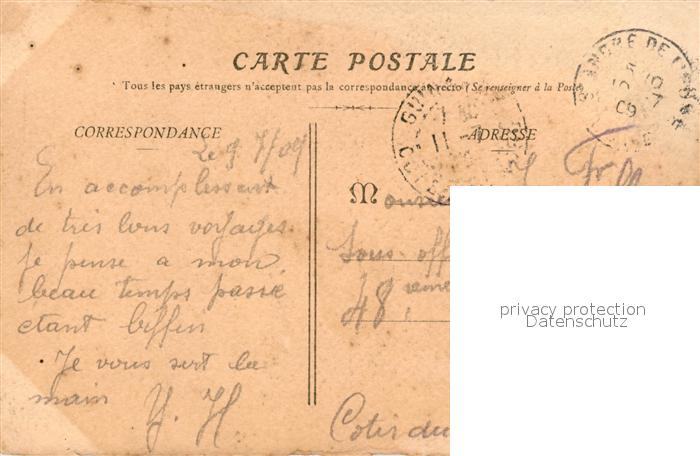 CARTE POSTALE
Tous les pays étrangers n'acceptent pas la correspondance au recto (Se renseigner à la Poste
CORRESPONDANCE
ADRESSE
ST ANDRE DE L'EURE
Le 9 7/09
En accomplessent
de très bons voyages
je pense a mon
beau temps passé
etant biffin
Je vous sert la
main Y. H.
Monsie
Sous off
48 eme
Cotes du
privacy protection
Datenschutz